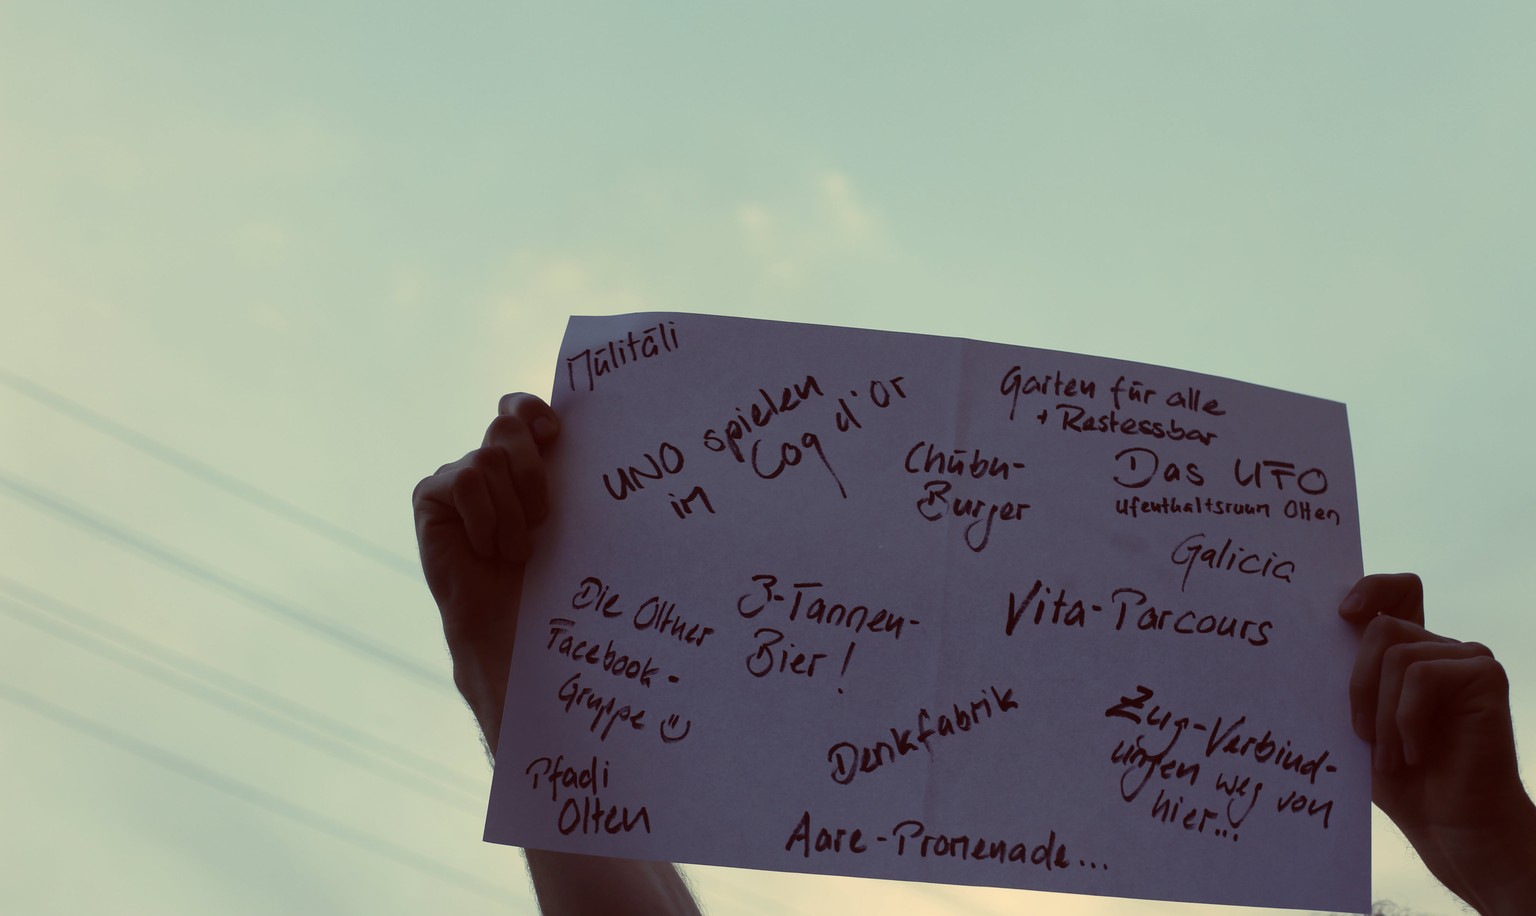 Mülitäli
UNO spielen
im Coq d'Or
Garten für alle
+ Restessbar
Chübu-
Burger
Das UFO
Ufenthaltsruum Olten
Galicia
Die Oltner
Facebook-
Gruppe
3-Tannen-
Bier!
Vita-Parcours
Denkfabrik
Zug-Verbind-
ungen weg von
hier...
Pfadi
Olten
Aare-Promenade...